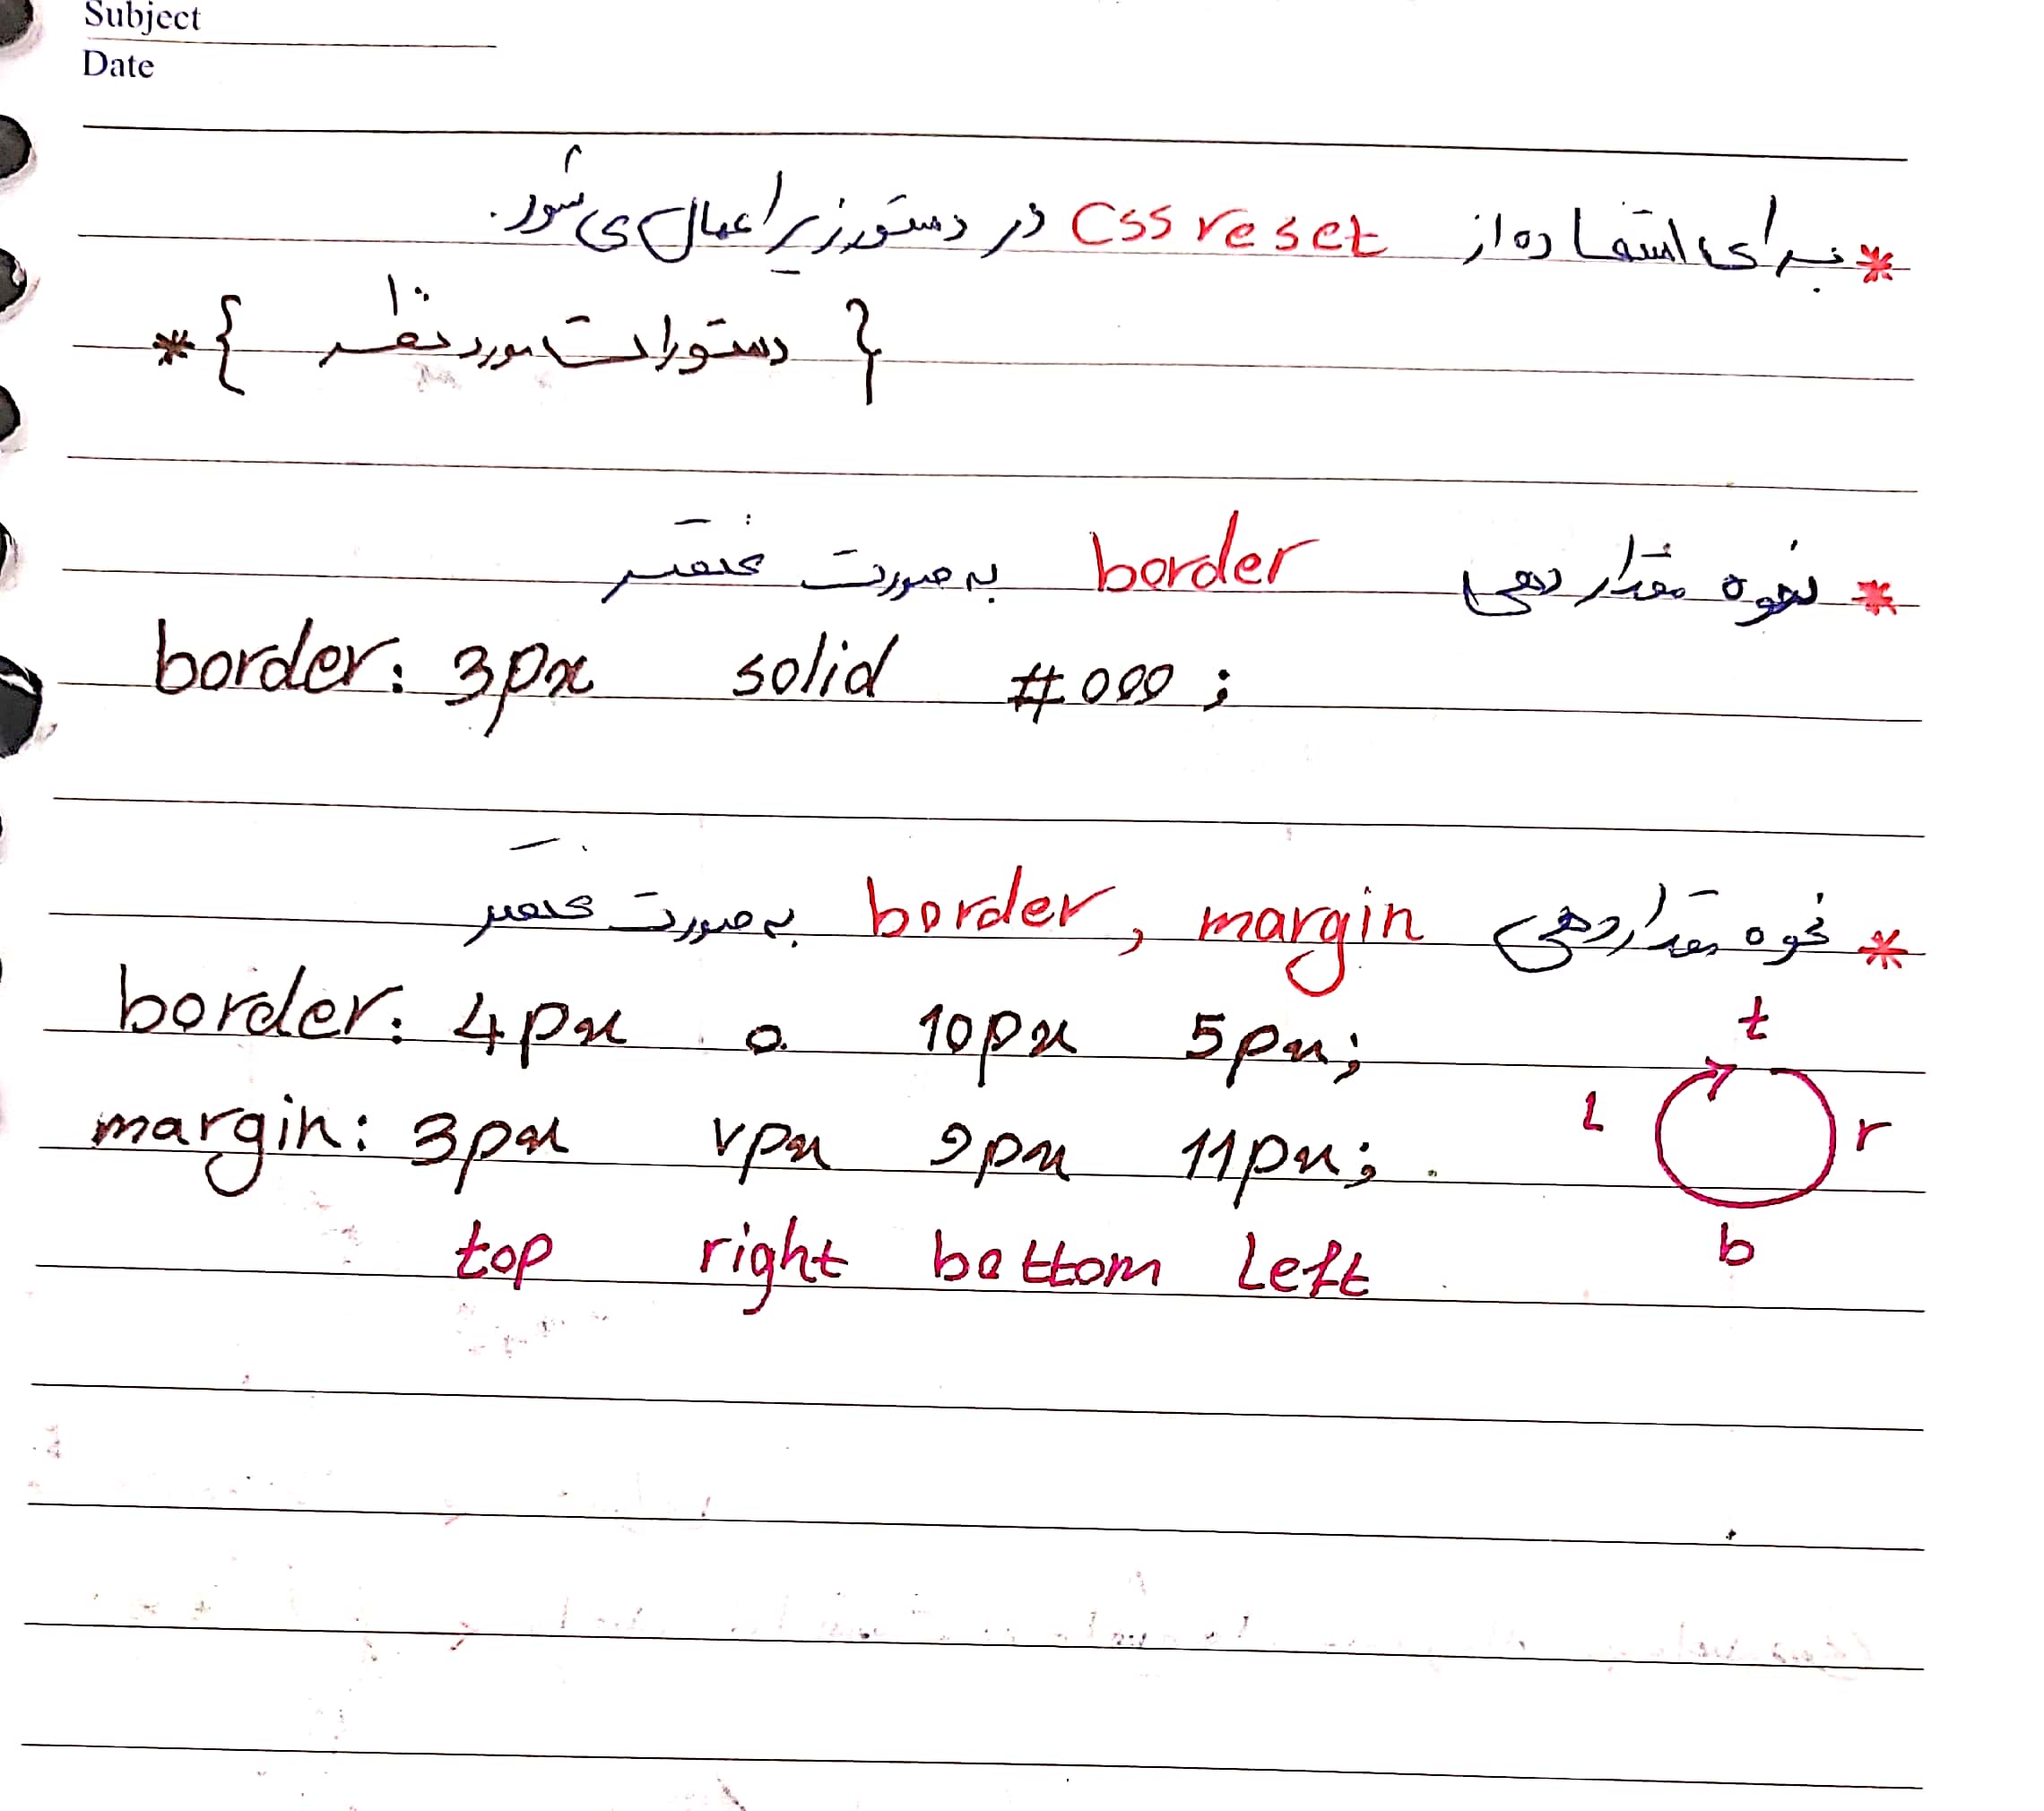 Subject
Date
* برای استفاده از Css reset در دستور زیر اعمال می شود.
* { دستورات مورد نظر }
* نحوه مقداردهی border به صورت مختصر
border: 3px solid #000;
* نحوه مقداردهی border, margin به صورت مختصر
border: 4px 0 10px 5px;
t
margin: 3px 7px 9px 11px;
l r
top right bottom Left
b